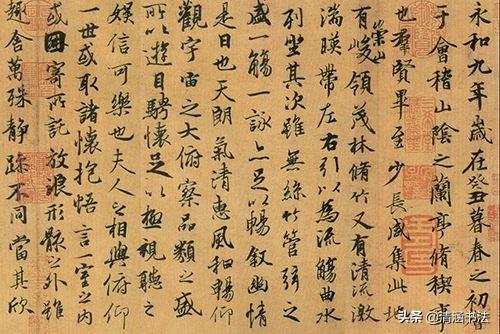 永和九年歲在癸丑暮春之初
于會稽山陰之蘭亭脩稧事
也羣賢畢至少長咸集此地
有崇山峻領茂林脩竹又有清流激
湍暎帶左右引以為流觴曲水
列坐其次雖無絲竹管弦之
盛一觴一詠亦足以暢敘幽情
是日也天朗氣清惠風和暢仰
觀宇宙之大俯察品類之盛
所以遊目騁懷足以極視聽之
娛信可樂也夫人之相與俯仰
一世或取諸懷抱悟言一室之內
或因寄所託放浪形骸之外雖
趣舍萬殊靜躁不同當其欣
头条 @清涵书法